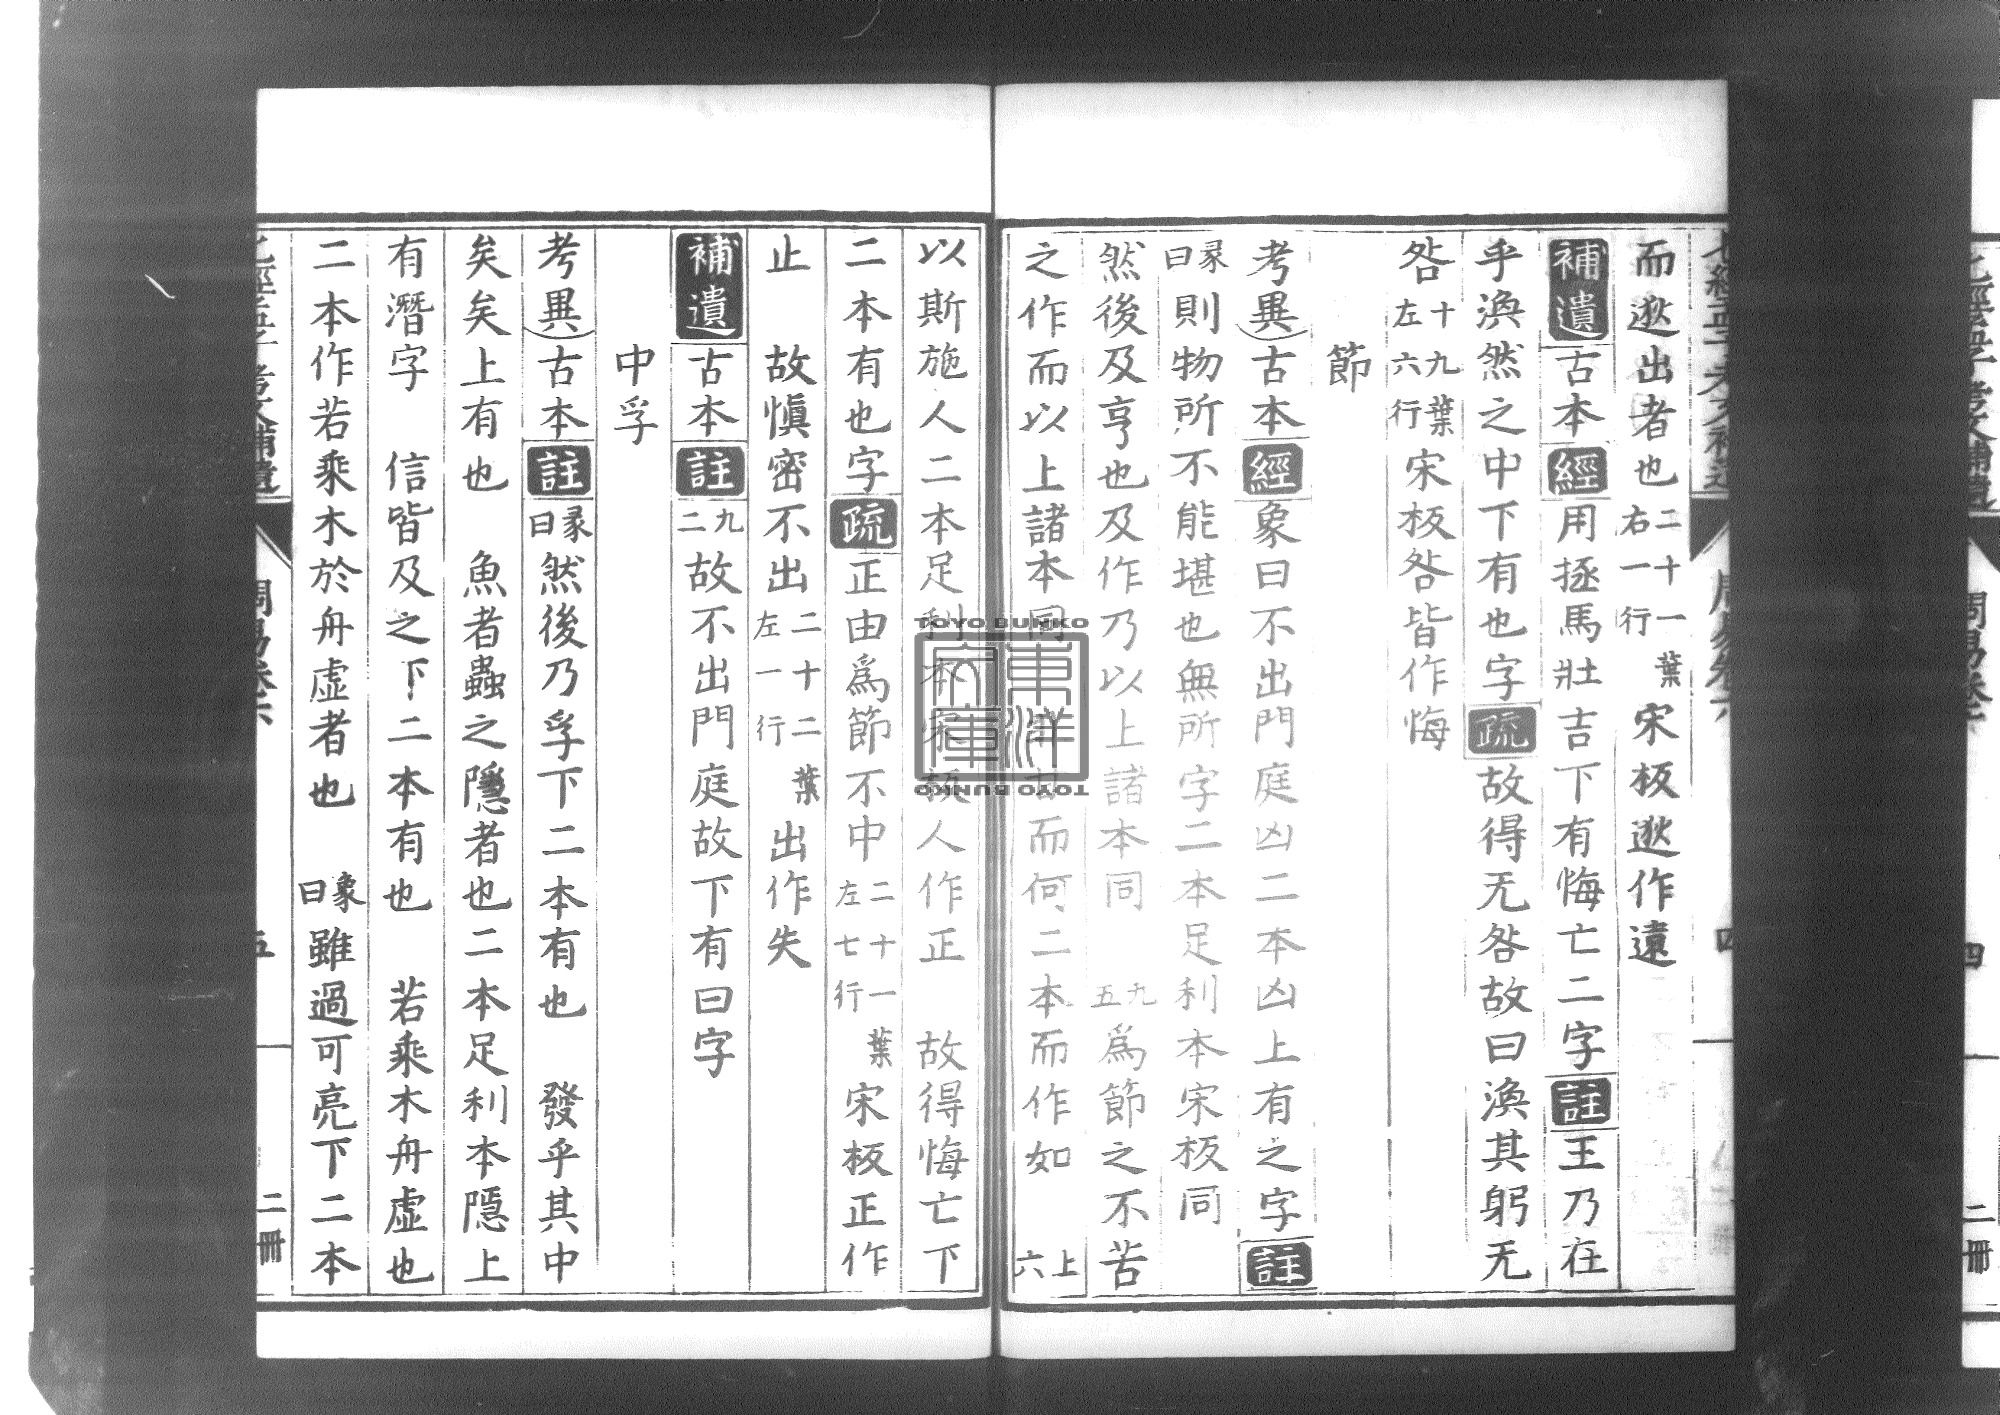 而逖出者也二十一葉右一行宋板逖作遠
補遺古本經用拯馬壯吉下有悔亡二字註王乃在
乎渙然之中下有也字疏故得无咎故曰渙其躬无
咎十九葉左六行宋板咎皆作悔
節
考異古本經象曰不出門庭凶二本凶上有之字註
彖曰則物所不能堪也無所字二本足利本宋板同
然後及亨也及作乃以上諸本同九五為節之不苦
之作而以上諸本同而何二本而作如上六
以斯施人二本足利本宋板人作正故得悔亡下
二本有也字疏正由為節不中二十一葉左七行宋板正作
止故愼密不出二十二葉左一行出作失
補遺古本註九二故不出門庭故下有曰字
中孚
考異古本註彖曰然後乃孚下二本有也發乎其中
矣矣上有也魚者蟲之隱者也二本足利本隱上
有潛字信皆及之下二本有也若乘木舟虛也
二本作若乘木於舟虛者也象曰雖過可亮下二本
七經孟子考文補遺
周易卷六
四
五
二冊
東洋文庫
TOYO BUNKO
TOYO BUNKO